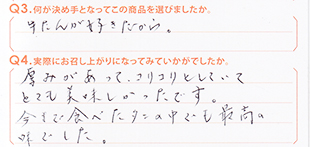 Q3.何が決め手となってこの商品を選びましたか。
牛たんが好きだから。
Q4.実際にお召し上がりになってみていかがでしたか。
厚みがあって、コリコリとしていて
とても美味しかったです。
今まで食べたタンの中でも最高の
味でした。